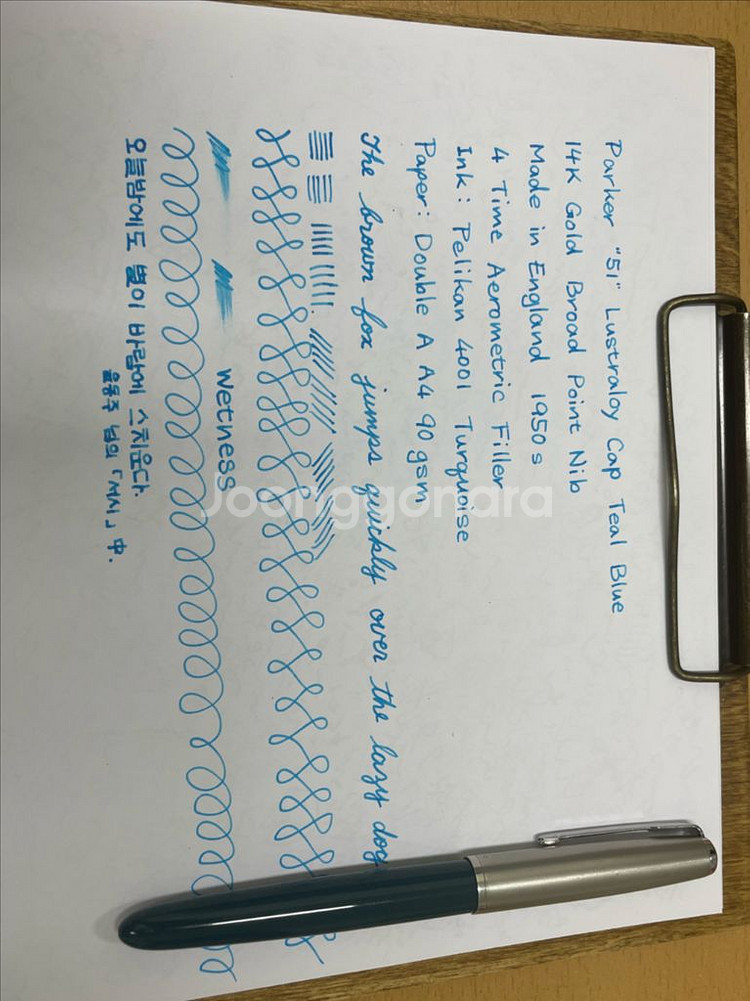 Parker "51" Lustraloy Cap Teal Blue
14K Gold Broad Point Nib
Made in England 1950s
4 Time Aerometric Filler
Ink: Pelikan 4001 Turquoise
Paper: Double A A4 90gsm
The brown fox jumps quickly over the lazy dog
Wetness
오늘밤에도 별이 바람에 스치운다.
윤동주 님의 「서시」 中.
Joonggonara